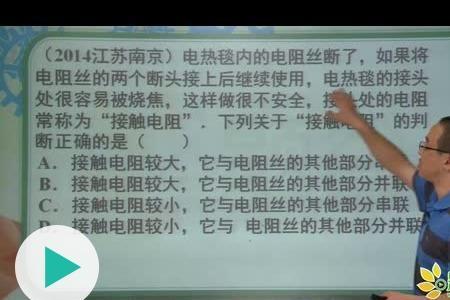 （2014江苏南京）电热毯内的电阻丝断了，如果将
电阻丝的两个断头接上后继续使用，电热毯的接头
处很容易被烧焦，这样做很不安全，接头处的电阻
常称为“接触电阻”．下列关于“接触电阻”的判
断正确的是（　　）
A．接触电阻较大，它与电阻丝的其他部分串联
B．接触电阻较大，它与电阻丝的其他部分并联
C．接触电阻较小，它与电阻丝的其他部分串联
D．接触电阻较小，它与 电阻丝的其他部分并联